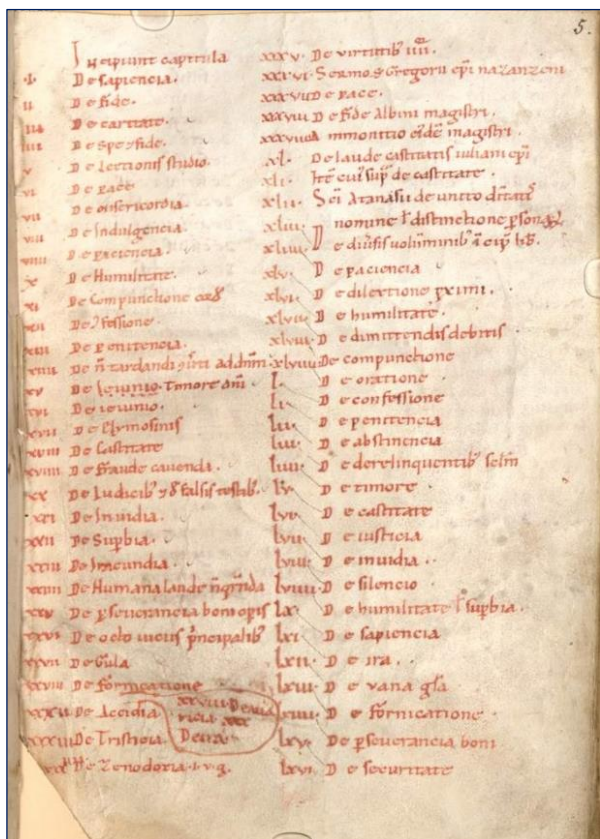 5.
Incipiunt capitula
.I. De sapiencia.
II De fide.
III De caritate.
IIII De spe ⁊ fide.
V De Lectionis studio.
VI De pace
VII De misericordia.
VIII De Indulgencia.
VIIII De paciencia.
X De Humilitate.
XI De Compunctione
XII De ɔfessione.
XIII De penitencia.
XIIII De n̄ tardandi ad dn̄m.
XV De Ieiunio. Timore dn̄i
XVI De ieiunio.
XVII De Elymosinis
XVIII De Castitate
XVIIII De fraude cauenda.
XX De Iudicib⁊ falsis testib.
XXI De Inuidia.
XXII De Supbia.
XXIII De Iracundia.
XXIIII De Humana laude
XXV De pseuerancia boni opis
XXVI De octo viciis principalib
XXVII De Gula
XXVIII De fornicatione
XXVIIII De aua
ricia XXX
De ira
XXXII De Accidia
XXXIII De Tristicia.
De Cenodoxia. i. v. g.
XXXV. De virtutib IIII.
XXXVI. Sermo S Gregorii epi nazanzeni
XXXVII De pace.
XXXVIII De fide Albini magistri.
XXXVIIII Ammonitio eiusdē magistri.
XL. De laude castitatis iuliani epi
XLI. Itē eius sup de castitate.
XLII. Sci Atanasii de unito
XLIII. nomine ł distinctione psonaꝝ.
XLIIII. De diuersis voluminib
XLV. De paciencia
XLVI. De dilectione pximi.
XLVII. De humilitate.
XLVIII De dimittendis debitis
XLVIIII. De compunctione
L. De oratione.
LI. De confessione
LII. De penitencia
LIII. De abstinencia
LIIII. De derelinquentib seclm
LV. De timore
LVI. De castitate
LVII. De iusticia
LVIII. De inuidia.
LVIIII. De silencio
LX. De humilitate ł supbia.
LXI. De sapiencia
LXII. De ira.
LXIII. De vana gła
LXIIII. De fornicatione.
LXV. De pseuerancia boni
LXVI. De securitate